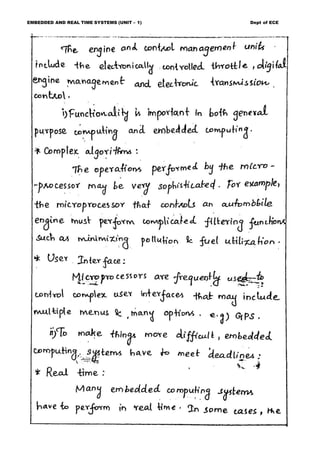 EMBEDDED AND REAL TIME SYSTEMS (UNIT - 1) Dept of ECE
The engine and control management units
include the electronically controlled throttle, digital
engine management and electronic transmission
control.
i) Functionality is important in both general
purpose computing and embedded computing.
* Complex algorithms :
The operations performed by the micro -
-processor may be very sophisticated. For example,
the microprocessor that controls an automobile
engine must perform complicated filtering functions
such as minimizing pollution & fuel utilization.
* User Interface :
Microprocessors are frequently used to
control complex user interfaces that may include
multiple menus & many options. e.g) GPS.
ii) To make things more difficult, embedded
computing systems have to meet deadlines :
* Real time :
Many embedded computing systems
have to perform in real time. In some cases, the